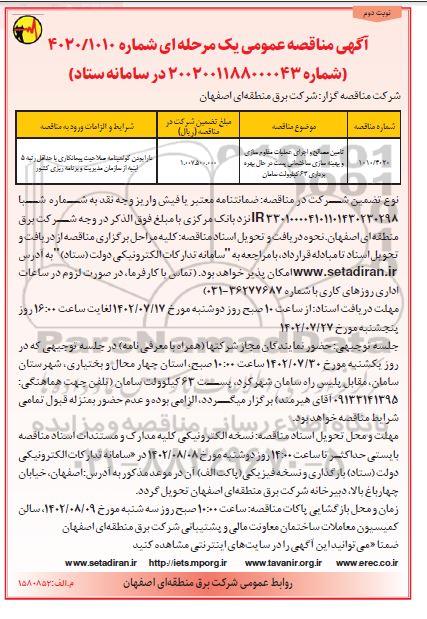 نوبت دوم
آگهی مناقصه عمومی یک مرحله ای شماره ۴۰۲۰/۱۰۱۰
(شماره ۲۰۰۲۰۰۱۱۸۸۰۰۰۰۴۳ در سامانه ستاد)
شرکت مناقصه گزار: شرکت برق منطقه‌ای اصفهان
شماره مناقصه
موضوع مناقصه
مبلغ تضمین شرکت در مناقصه (ریال)
شرایط و الزامات ورود به مناقصه
۱۰۱۰/۴۰۲۰
تامین مصالح و اجرای عملیات مقاوم سازی و بهینه سازی ساختمانی پست در حال بهره برداری ۶۳ کیلوولت سامان
۱,۰۰۷,۵۰۰,۰۰۰
دارا بودن گواهینامه صلاحیت پیمانکاری با حداقل رتبه ۵ ابنیه از سازمان مدیریت و برنامه ریزی کشور
نوع تضمین شرکت در مناقصه: ضمانتنامه معتبر یا فیش واریز وجه نقد به شماره شبا
IR۳۳۰۱۰۰۰۰۴۱۰۱۱۰۱۴۳۰۲۳۰۲۹۸ نزد بانک مرکزی با مبلغ فوق الذکر در وجه شرکت برق
منطقه‌ای اصفهان. نحوه دریافت و تحویل اسناد مناقصه: کلیه مراحل برگزاری مناقصه از دریافت و
تحویل اسناد تا مبادله قرارداد، با مراجعه به "سامانه تدارکات الکترونیکی دولت (ستاد)" به آدرس
www.setadiran.ir امکان پذیر خواهد بود. (تماس با کارفرما، در صورت لزوم در ساعات
اداری روزهای کاری با شماره ۳۶۲۷۷۶۸۷-۰۳۱)
مهلت دریافت اسناد: از ساعت ۱۰ صبح روز دوشنبه مورخ ۱۴۰۲/۰۷/۱۷ لغایت ساعت ۱۶:۰۰ روز
پنجشنبه مورخ ۱۴۰۲/۰۷/۲۷
جلسه توجیهی: حضور نمایندگان مجاز شرکتها (همراه با معرفی نامه) در جلسه توجیهی که در
روز یکشنبه مورخ ۱۴۰۲/۰۷/۳۰ ساعت ۱۰:۰۰ صبح، استان چهار محال و بختیاری، شهرستان
سامان، مقابل پلیس راه سامان شهرکرد، پست ۶۳ کیلوولت سامان (تلفن جهت هماهنگی:
۰۹۱۳۳۱۴۱۳۹۵ آقای هیرمند) برگزار میگردد، الزامی بوده و عدم حضور بمنزله قبول تمامی
شرایط مناقصه خواهد بود.
مهلت و محل تحویل اسناد مناقصه: نسخه الکترونیکی کلیه مدارک و مستندات اسناد مناقصه
بایستی حداکثر تا ساعت ۱۴:۰۰ روز دوشنبه مورخ ۱۴۰۲/۰۸/۰۸ در «سامانه تدارکات الکترونیکی
دولت (ستاد) بارگذاری و نسخه فیزیکی (پاکت الف) آن در موعد مذکور به آدرس: اصفهان، خیابان
چهارباغ بالا، دبیرخانه شرکت برق منطقه‌ای اصفهان تحویل گردد.
زمان و محل بازگشایی پاکات مناقصه: ساعت ۱۰:۰۰ صبح روز سه شنبه مورخ ۱۴۰۲/۰۸/۰۹، سالن
کمیسیون معاملات ساختمان معاونت مالی و پشتیبانی شرکت برق منطقه‌ای اصفهان
ضمنا «می‌توانید این آگهی را در سایت‌های اینترنتی مشاهده کنید
www.setadiran.ir http://iets.mporg.ir www.tavanir.org.ir www.erec.co.ir
روابط عمومی شرکت برق منطقه‌ای اصفهان
م.الف: ۱۵۸۰۸۵۲